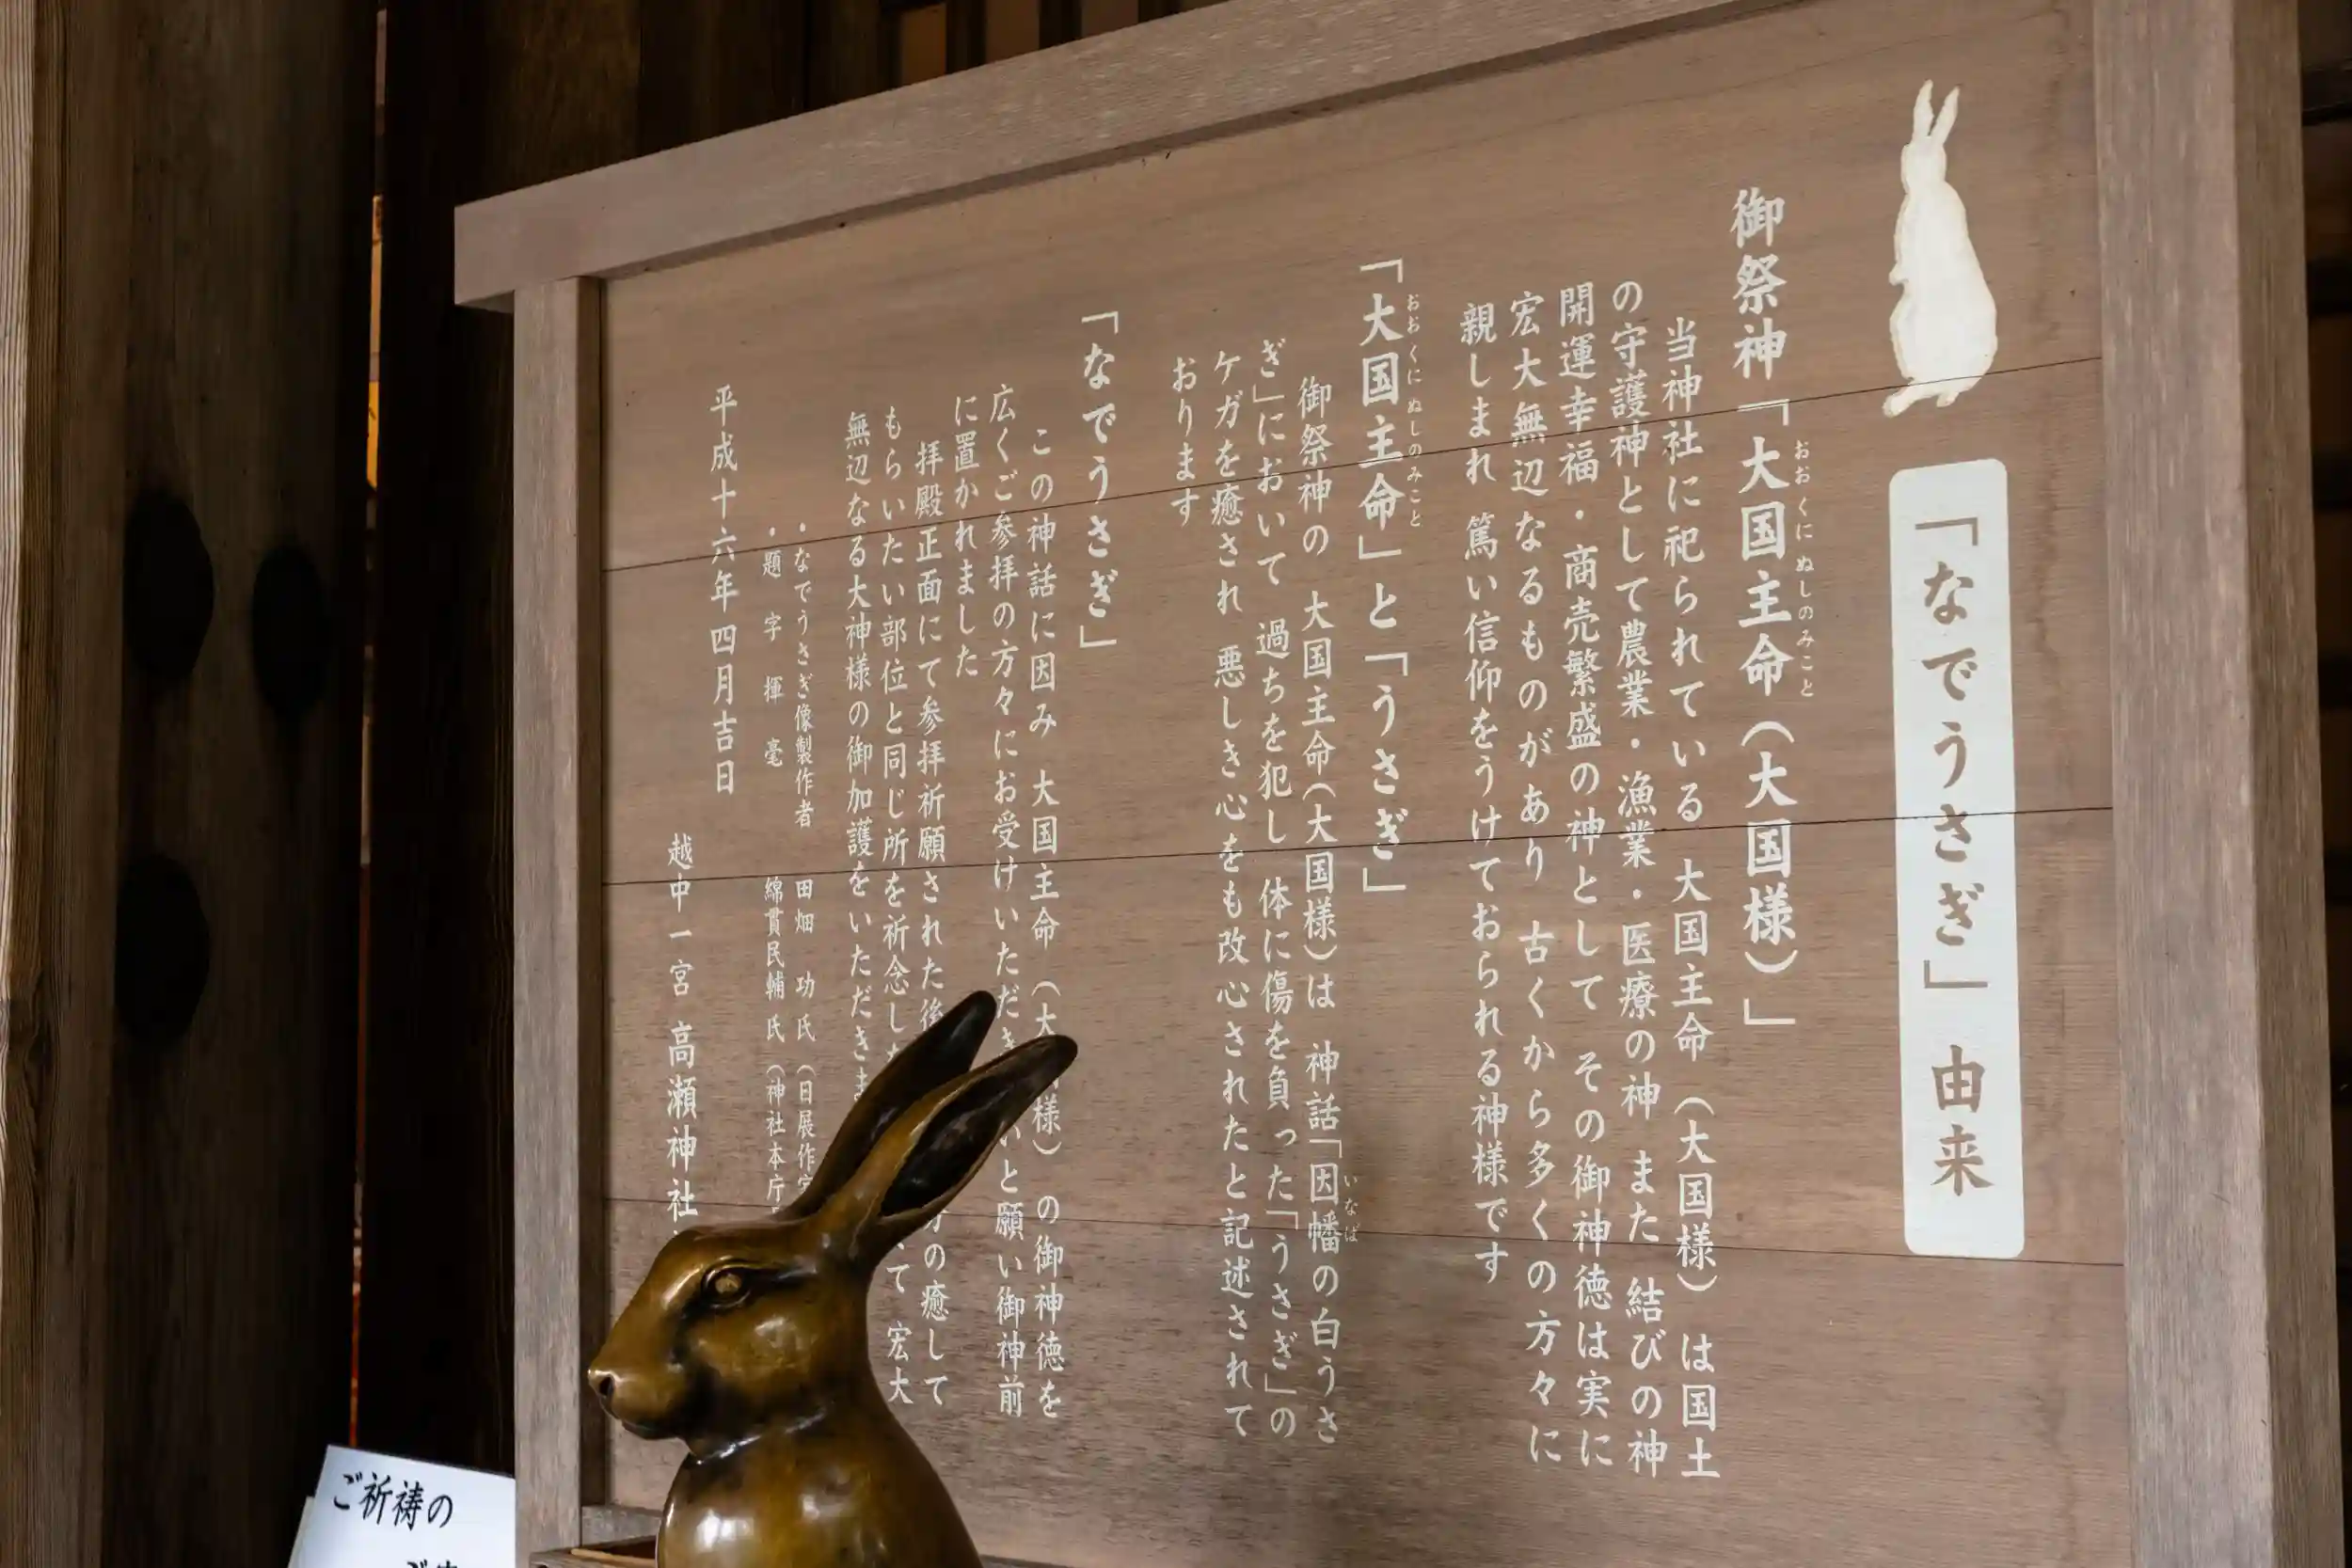 「なでうさぎ」由来
御祭神「大国主命（大国様）」
おおくにぬしのみこと
当神社に祀られている 大国主命（大国様）は国土
の守護神として農業・漁業・医療の神 また 結びの神
開運幸福・商売繁盛の神として その御神徳は実に
宏大無辺なるものがあり 古くから多くの方々に
親しまれ 篤い信仰をうけておられる神様です
「大国主命」と「うさぎ」
おおくにぬしのみこと
御祭神の 大国主命（大国様）は 神話「因幡の白うさ
いなば
ぎ」において 過ちを犯し 体に傷を負った「うさぎ」の
ケガを癒され 悪しき心をも改心されたと記述されて
おります
「なでうさぎ」
この神話に因み 大国主命（大 様）の御神徳を
広くご参拝の方々にお受けいただき いと願い御神前
に置かれました
拝殿正面にて参拝祈願された後 の癒して
もらいたい部位と同じ所を祈念し て 宏大
無辺なる大神様の御加護をいただきま
・なでうさぎ像製作者 田畑 功 氏（日展作
・題字揮毫 綿貫民輔 氏（神社本庁
平成十六年四月吉日
越中一宮 高瀬神社
ご祈祷の